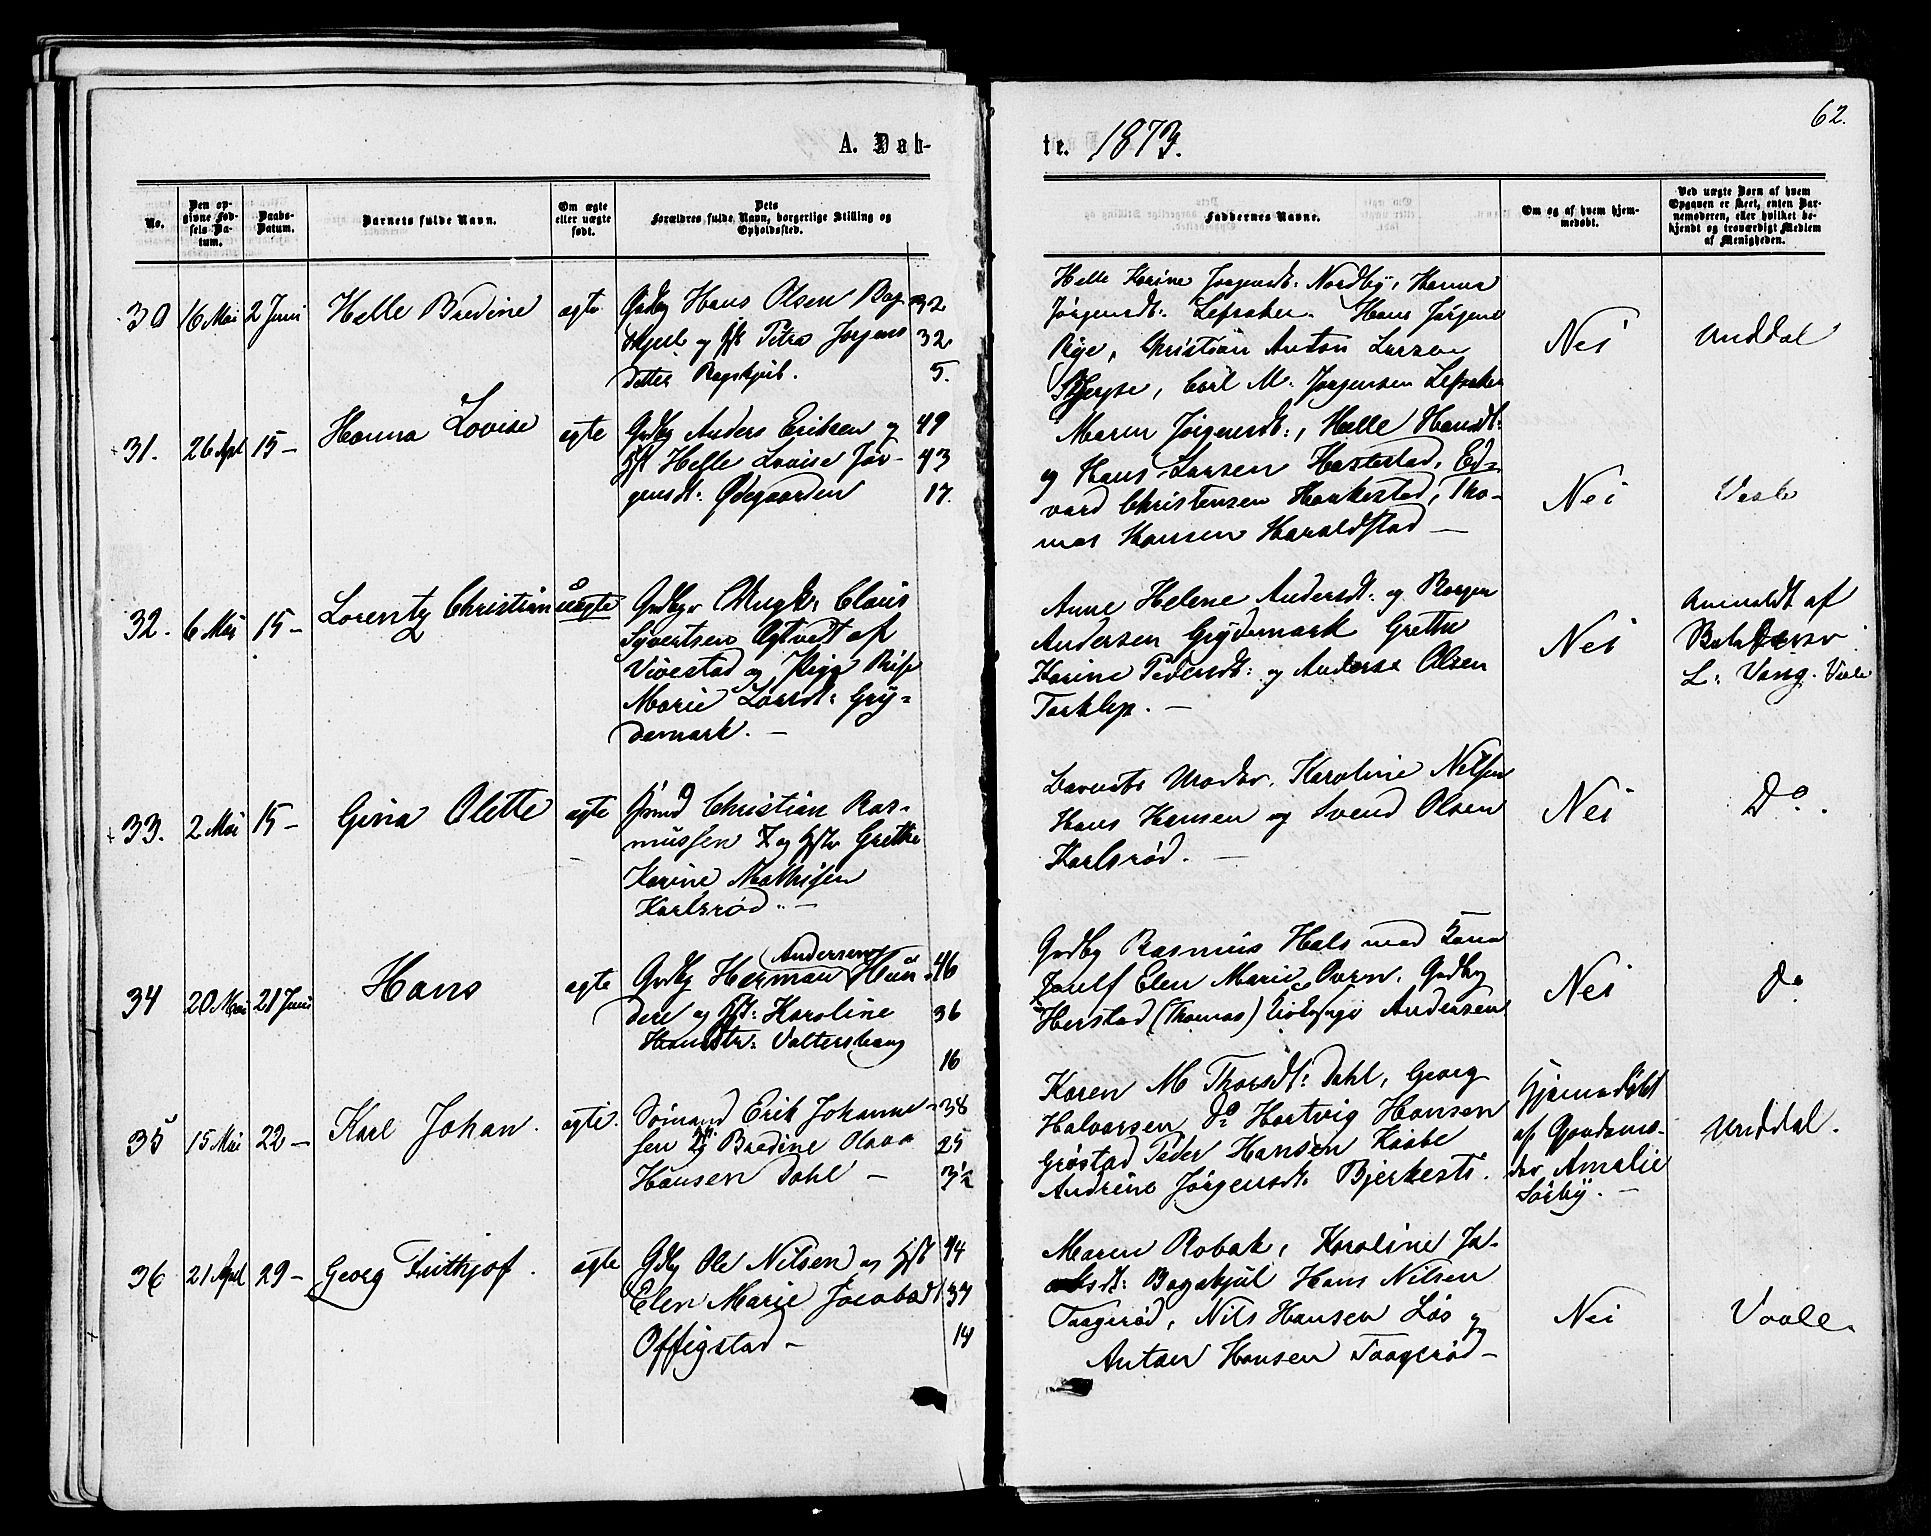 62.
A. Døb-
te. 1873.
No.
Den op-
givne Fød-
sels Da-
tum.
Daabs-
Datum.
Barnets fulde Navn.
Om ægte
eller uægte
født.
Dets
Forældres fulde Navn, borgerlige Stilling og
Opholdssted.
Faddernes Navne.
Om og af hvem hjem-
medøbt.
Ved uægte Børn af hvem
Opgaven er skeet, enten Bar-
nemoderen, eller hvilket be-
kjendt og troværdigt Medlem
af Menigheden.
30 16 Mai 2 Juni Helle Bredine ægte
Gdbg Hans Olsen Bag- 32
skjel og Hst Petra Jørgens 32
datter Bagskjel. 5.
Helle Karine Jørgensdt: Nordby, Hanna
Jørgensdt: Lefsaker. Hans Jørgene
Rye, Christian Anton Larsen
Bjerge, Carl M. Jørgensen Lefsaker
Nei
Unddal
31. 26 Apl 15 – Hanna Lovise ægte
Gdbg Anders Eriksen og 49
Hst Helle Lovise Jør- 43
gensdt: Ødegaarden 17.
Maren Jørgensdt:, Helle Hansdt:
og Hans Larsen Hastestad, Ed-
vard Christensen Haukestad, Tho-
mas Hansen Haraldstad –
Nei
Vaale
32. 6 Mai 15 – Lorentz Christian uægte
Gdbg Ungk: Claus
Syvertsen Agtvet af
Vivestad og Pige
Marie Larsdt: Gry-
demark. –
Anne Helene Andersdt: og Borger
Andersen Grydemark Grethe
Karine Pedersdt: og Anders Olsen
Torklep. –
Nei
Anmeldt af
L: Vang. Vaale
33. 2 Mai 15 – Gina Olette ægte
Christian Ras-
mussen og Hstr Grethe
Karine Mathisen
Karlsrød. –
Karoline Nilsen
Hans Hansen og Svend Olsen
Karlsrød. –
Nei
Do.
34 20 Mai 21 Juni Hans ægte
Andersen
Gdbg Herman Hun- 46
dere og Hst: Karoline 36
Hansdtr: Valtershaug 16
Gdbg Rasmus Hals med Kone
Elen Marie Oven, Gdbg
Herstad (Thomas) Andersen
Nei
Do
35 15 Mai 22 – Karl Johan. ægte.
Sømand Erik Johanne- 38
sen og Bredine Olava 25
Hansen Dahl – 3½
Karen M Thorsdt: Dahl, Georg
Halvorsen Do Hartvig Hansen
Grøstad Peder Hansen Kaabe
Andrine Jørgensdt. Bjerkests.
Hjemmedøbt
af Gjordemo-
der Amalie
Sørby. –
Unddal.
36 21 April 29 – Georg Frithjof. ægte
Gdbg Ole Nilsen og Hst 44
Elen Marie Jacobsdt 37
Offigstad – 14
Maren Robak, Karoline Ja-
Bagskjul Hans Nilsen
Taagerød, Nils Hansen Løs og
Anton Hansen Taagerød –
Nei
Vaale.